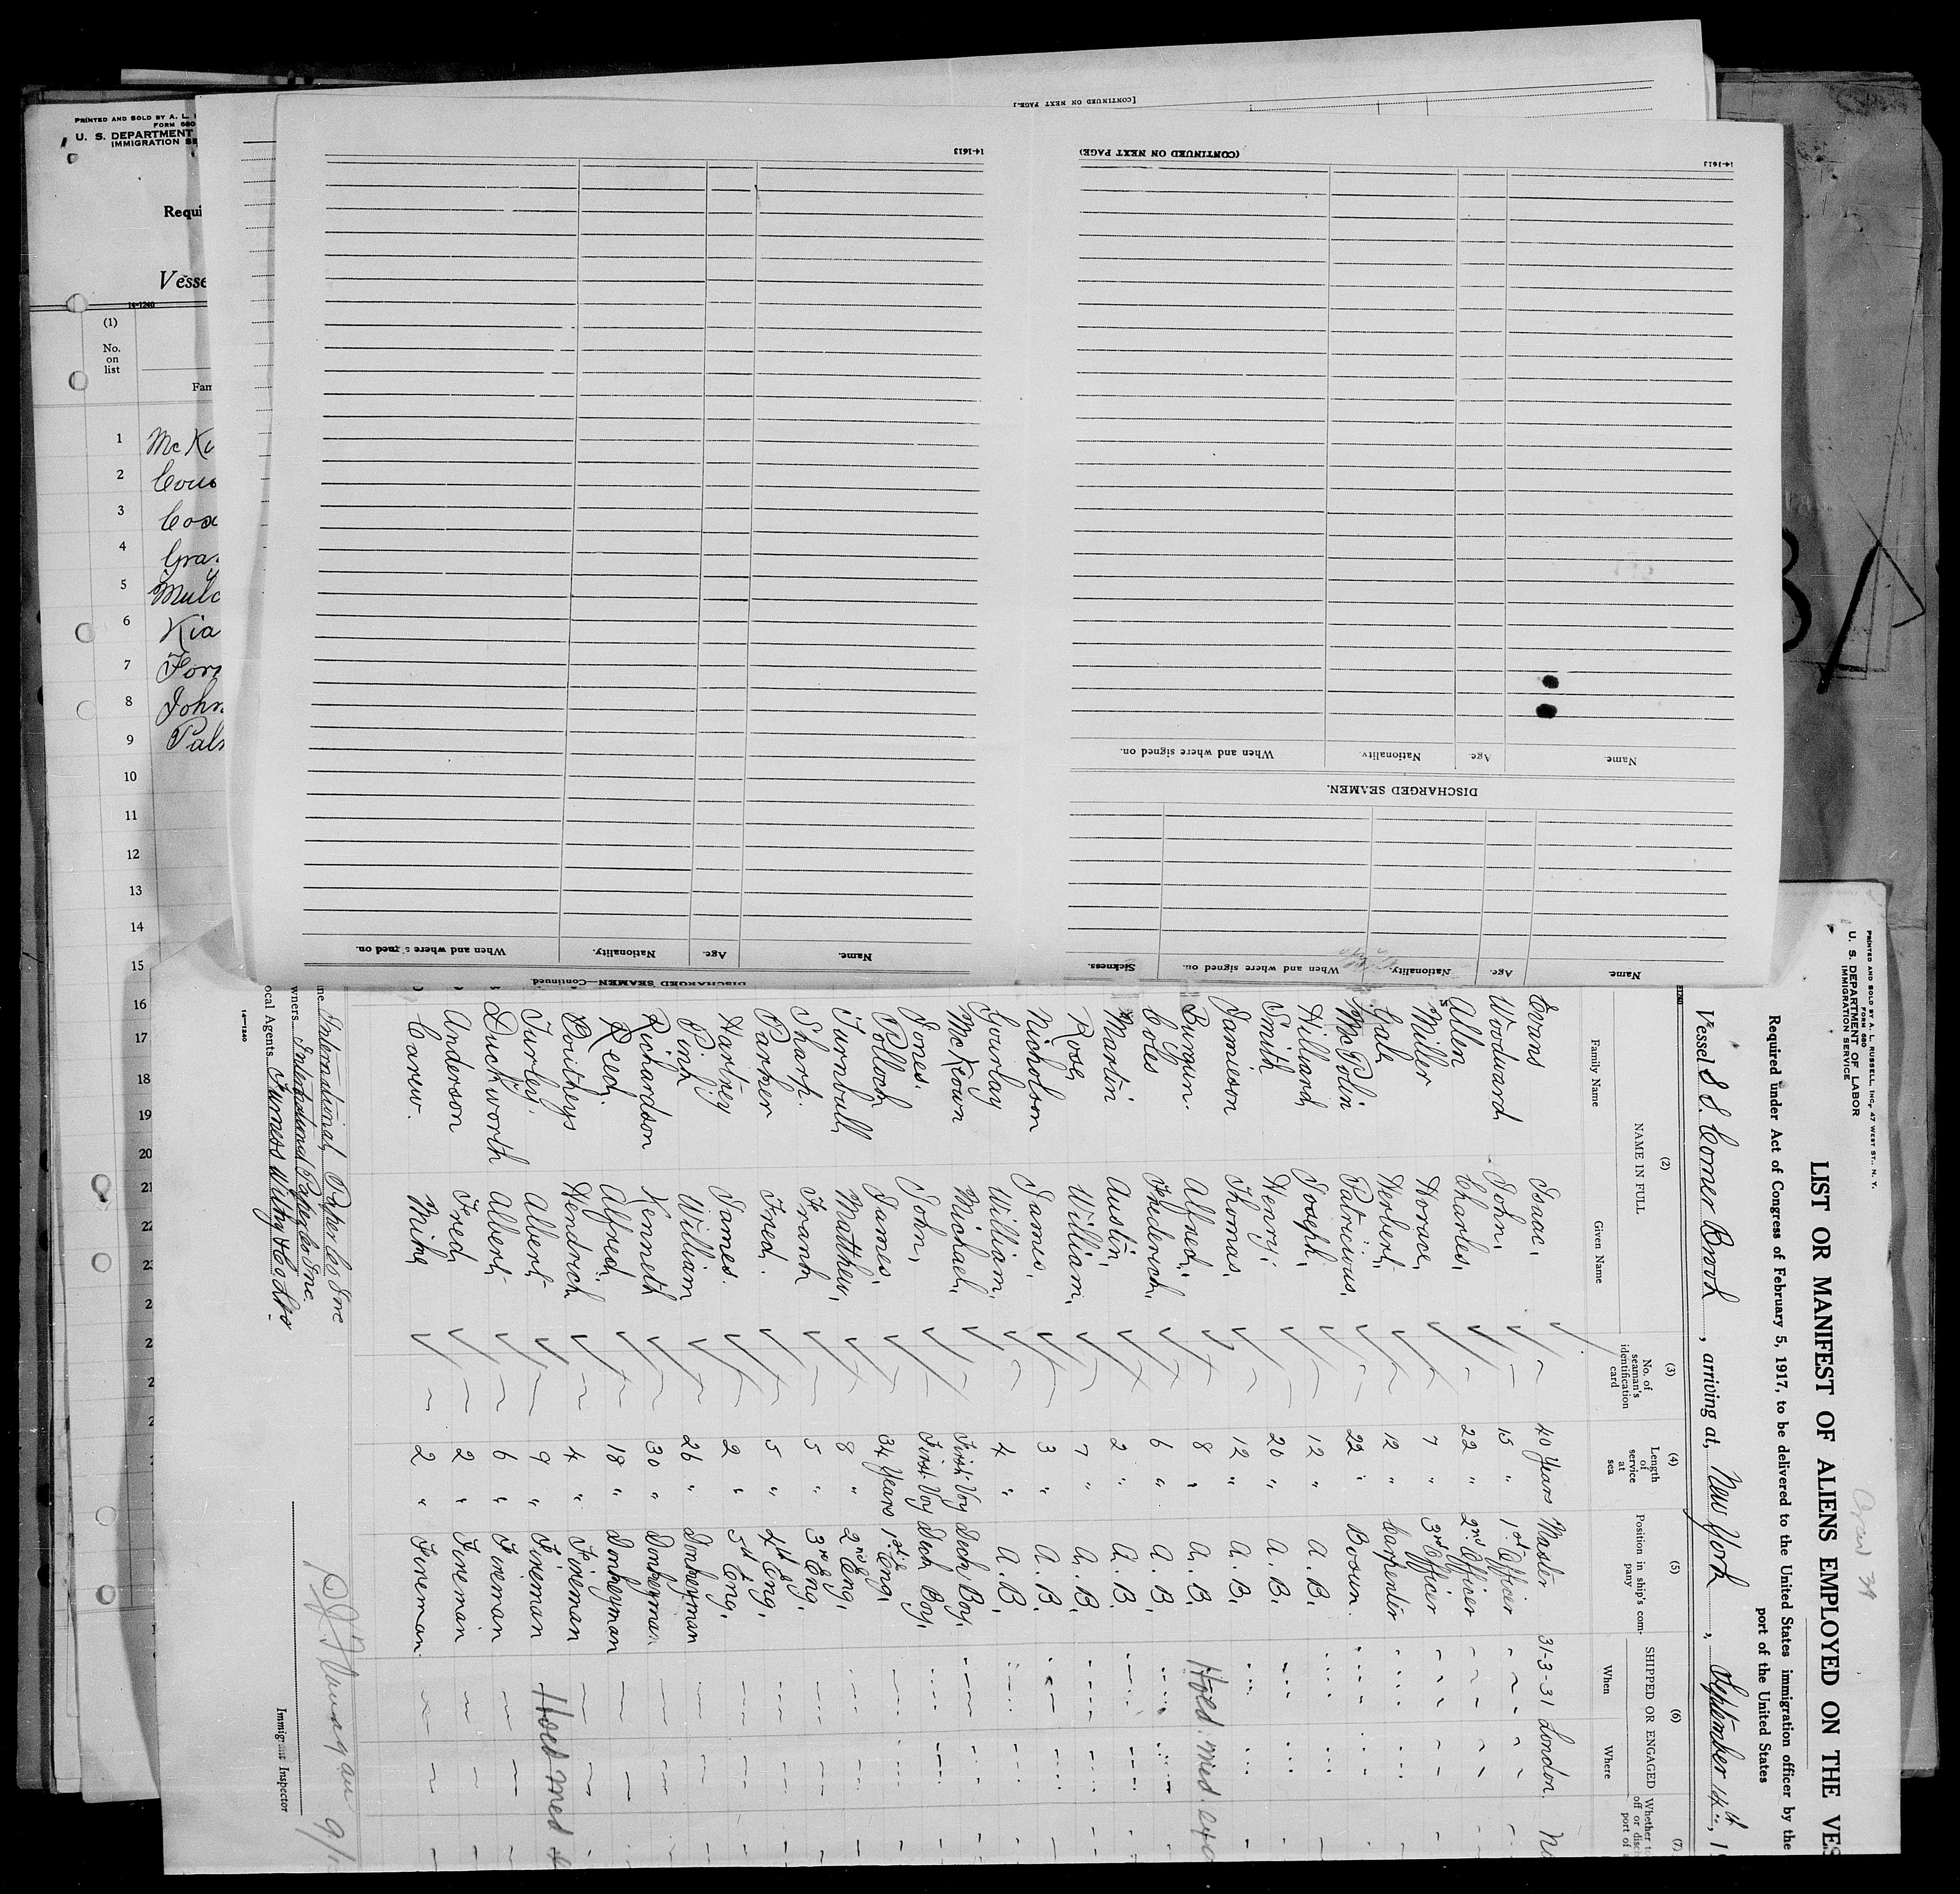 PRINTED AND SOLD BY A. L.
FORM 680
U. S. DEPARTMENT
IMMIGRATION SE
Requi
Vesse
14-1240
(1)
No.
on
list
Fam
1 McKi
2 Cous
3 Cox
4 Gra
5 Mulc
6 Kia
7 For
8 John
9 Pal
10
11
12
13
14
15
16
17
18
19
20
21
22
23
[CONTINUED ON NEXT PAGE.]
14-1613
(CONTINUED ON NEXT PAGE)
14-1613
Name.
Age.
Nationality.
When and where signed on.
DISCHARGED SEAMEN.
Name.
Age.
Nationality.
When and where signed on.
Sickness.
DISCHARGED SEAMEN—Continued.
Name.
Age.
Nationality.
When and where signed on.
PRINTED AND SOLD BY A. L. RUSSELL, INC., 47 WEST ST., N. Y.
FORM 680
U. S. DEPARTMENT OF LABOR
IMMIGRATION SERVICE
LIST OR MANIFEST OF ALIENS EMPLOYED ON THE VES
Required under Act of Congress of February 5, 1917, to be delivered to the United States immigration officer by the
port of the United States
Vessel S.S. Corner Brook, arriving at, New York, September 14th, 1
(2)
NAME IN FULL
Family Name
Given Name
(3)
No. of
seaman's
identification
card
(4)
Length
of
service
at
sea
(5)
Position in ship's com-
pany
(6)
SHIPPED OR ENGAGED
When
Where
(7)
Whether t
off or disc
port of
Evans Isaac. 40 Years Master 31-3-31 London. No
Woodward John. 15 " 1st Officer
Allen Charles. 22 " 2nd Officer
Miller Horace. 7 " 3rd Officer
Gale Herbert. 12 " Carpenter
McPolin Patricius. 22 " Bosun.
Hillard Joseph. 12 " A.B.
Smith Henry. 20 " A.B.
Jameson Thomas. 12 " A.B.
Alfred. 8 " A.B. Hold med.
Coles Frederick. 6 " A.B.
Martin Austin. 2 " A.B.
Rose William. 7 " A.B.
Nicholson James. 3 " A.B.
Gourlay William. 4 " A.B.
McKeown Michael. First Voy Deck Boy.
Jones. John. First Voy Deck Boy.
Pollock James. 34 Years 1st Eng.
Turnbull Matthew. 8 " 2nd Eng.
Sharp. Frank 5 " 3rd Eng.
Parker Fred. 5 " 4th Eng.
Hartney James. 2 " 5th Eng.
Pink William 26 " Donkeyman
Richardson Kenneth 30 " Donkeyman
Reed. Alfred. 18 " Donkeyman
Hendrick 4 " Fireman
Turley. Albert 9 " Fireman Hold med
Duckworth Albert 6 " Fireman
Anderson Fred 2 " Fireman
Carew. Mike 2 " Fireman.
International Paper Co Inc
wners International Paper Co Inc.
ocal Agents Furness Withy & Co Ltd.
14-1240
Immigrant Inspector